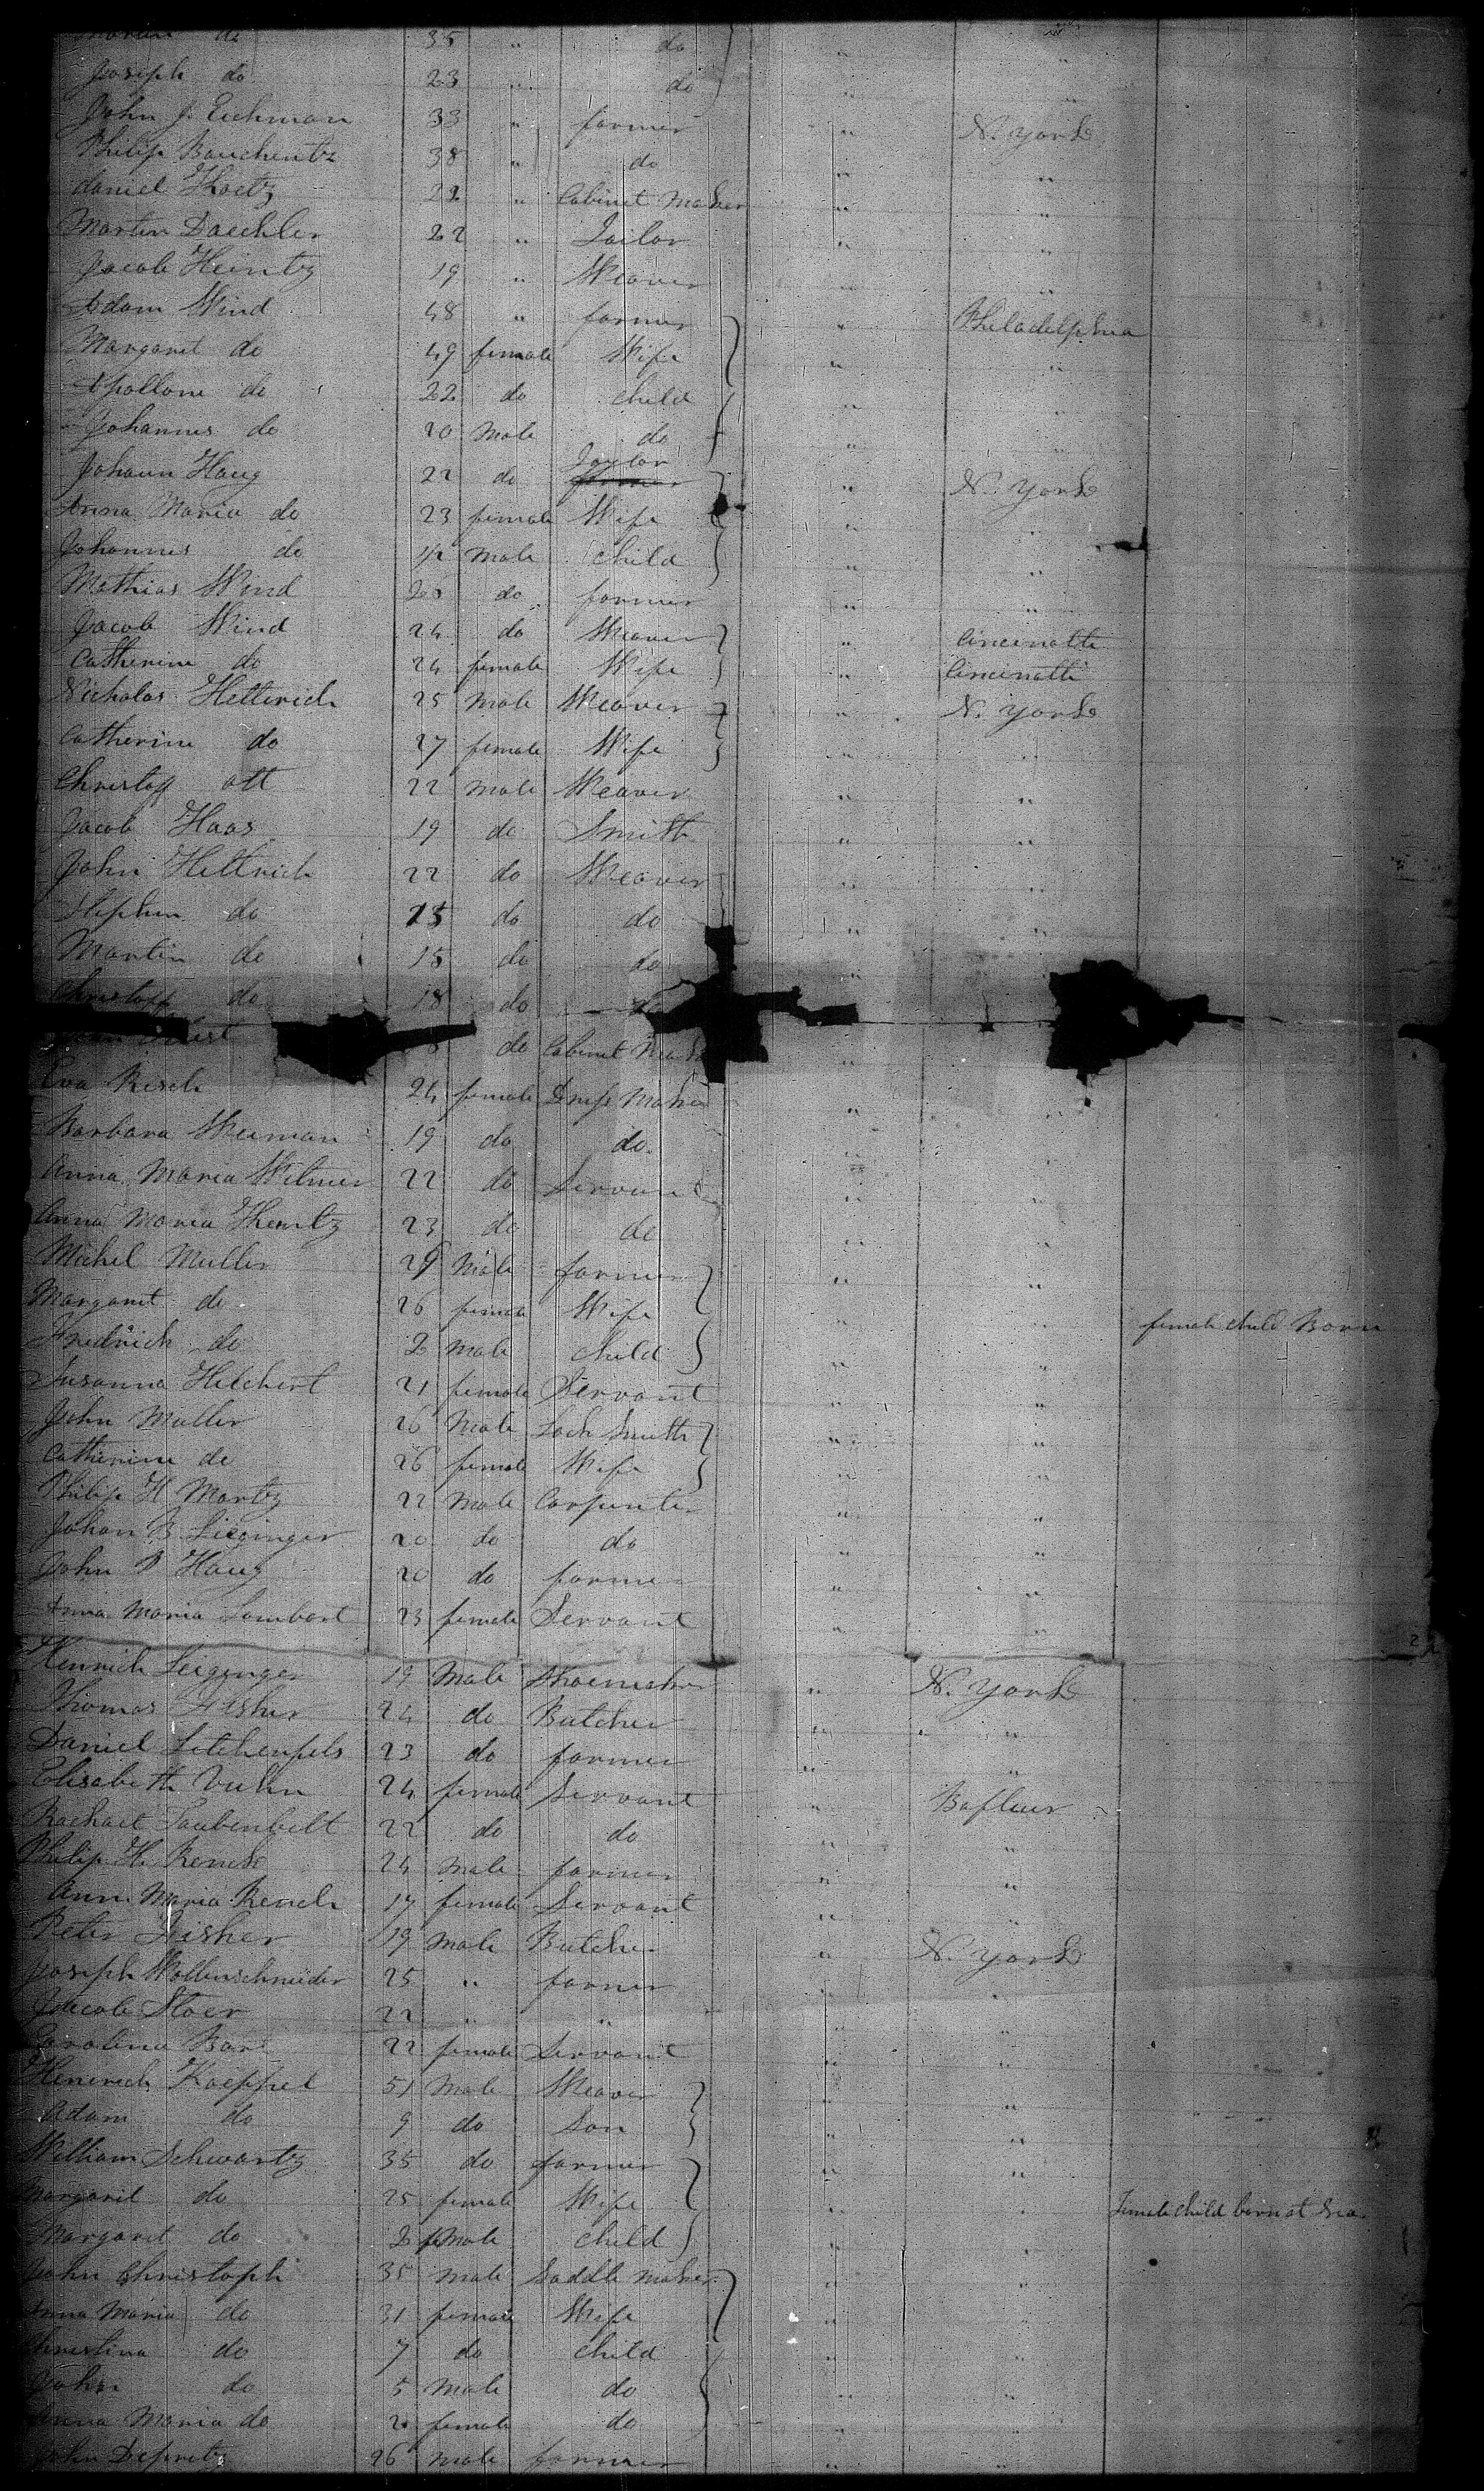 do 35 " do "
Joseph do 23 " do " "
John J. Eichman 33 " farmer " N. York
Philip Bauchentz 38 " do " "
daniel 22 " Cabinet Maker " "
Martin Daechler 22 " Tailor " "
Jacob Heintz 19 " Weaver "
Adam Wind 48 " farmer " Philadelphia
Margaret do 49 female Wife " "
Apollone do 22 do child "
Johannes do 20 Male do "
Taylor
Johann Haug 22 do farmer " N. York
Anna Maria do 23 female Wife " "
Johannes do 1/2 Male child "
Mathias Wind 20 do farmer " "
Jacob Wind 24 do Weaver " Cincinatti
Catherine do 24 female Wife " Cincinatti
Nicholas Hetterich 25 Male Weaver " N. York
Catherine do 27 female Wife " "
Christof ott 22 Male Weaver " "
Jacob Haas 19 do Smith " "
John Hettrich 22 do Weaver " "
Stephen do 25 do do " "
Martin do 15 do do "
Christoff do 18 do do
do Cabinet
Eva Resch 24 female Dress Maker " "
Barbara Weiman 19 do do " "
Anna Maria Wilmer 22 do Servant " "
Anna Maria 23 do do " "
Michel Muller 29 Male farmer " "
Margaret do 26 female Wife " female child Born
Fredrich do 2 Male child " "
Susanna Helchert 21 female Servant " "
John Muller 26 Male Lock Smith " "
Catherine do 26 female Wife " "
Philip H Martz 22 Male Carpenter " "
Johan B. 20 do do " "
John P Haug 20 do farmer " "
Anna Maria Lambert 23 female Servant " "
Henrich 19 Male Shoemaker " N. York
Thomas Fisher 24 do Butcher " "
Daniel 23 do farmer " "
Elisabeth Kuhn 24 female Servant " Bafluer
Rachael Laubenbelt 22 do do " "
Philip H. 24 Male farmer " "
Ann Maria Rench 17 female Servant " "
Peter Fisher 19 Male Butcher " N. York
Joseph Wollenschneider 25 " farmer " "
Jacob Stoer 22 " " " "
Carolina 22 female Servant " "
Heinrich Koeppel 51 Male Weaver " "
Adam do 9 do Son " "
William Schwartz 35 do farmer " "
Margaret do 25 female Wife " " Female child born at Sea
Margaret do 2 female child " "
John Christoph 35 Male Saddle Maker " "
Anna Maria do 31 female Wife " "
Christina do 7 do child " "
John do 5 Male do " "
Anna Maria do 2 female do "
John 26 Male farmer " "